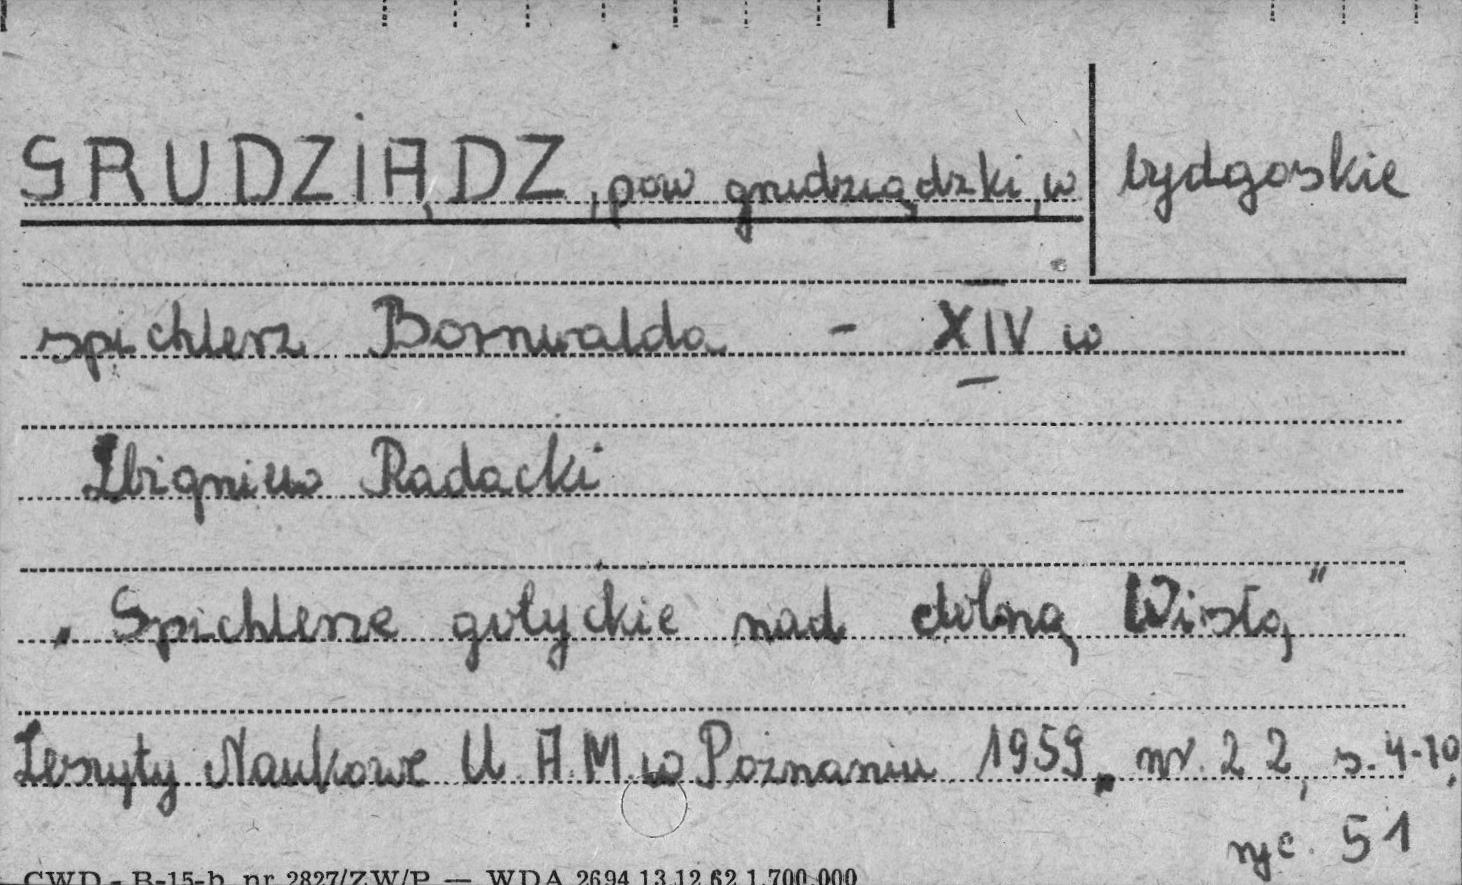 GRUDZIĄDZ, pow grudziądzki, w bydgoskie
spichlerz Bornwalda - XIV w
Zbigniew Radacki
„Spichlerze gotyckie nad dolną Wisłą"
Zeszyty Naukowe U.A.M. w Poznaniu 1959, nr. 22, s. 4-70,
ryc. 51
CWD - B-15-b nr 2827/ZW/P — WDA 2694 13.12.62 1.700.000